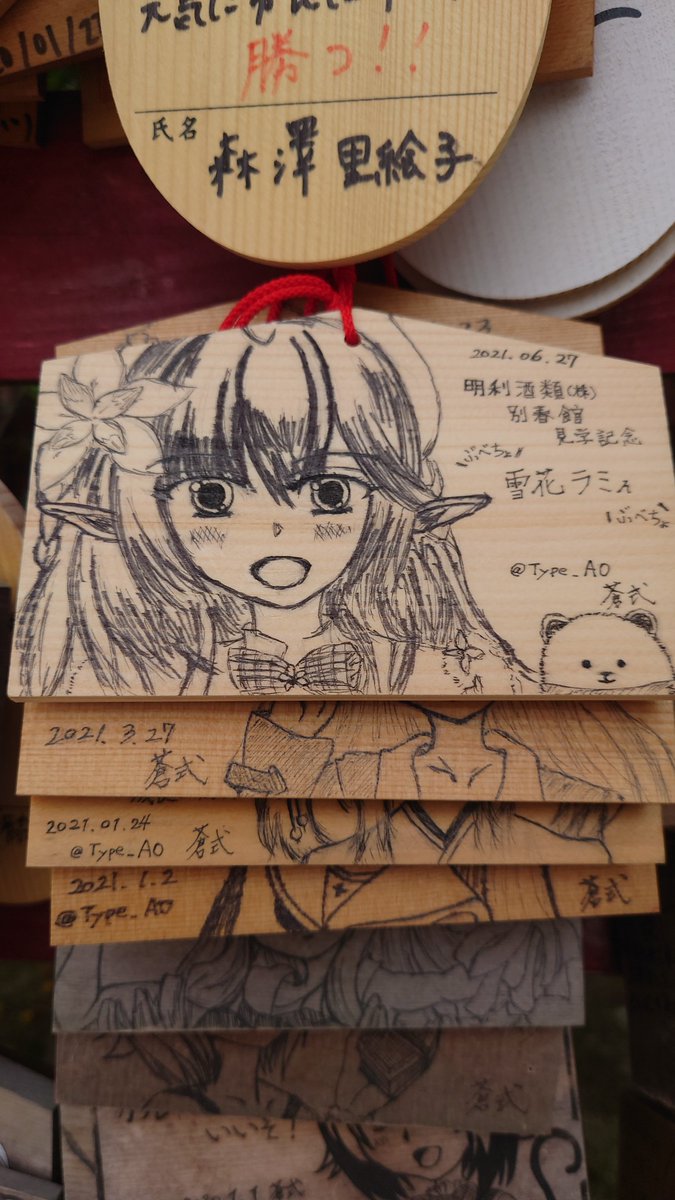 勝つ!!
氏名
森澤里絵子
2021.06.27
明利酒類(株)
別春館
見学記念
ぷべちょ!!
雪花ラミィ
ぷべちょ
@Type_AO
蒼式
2021.3.27
蒼式
2021.01.24
@Type_AO 蒼式
2021.1.2
@Type_AO
蒼式
蒼式
いいぞ!
蒼式